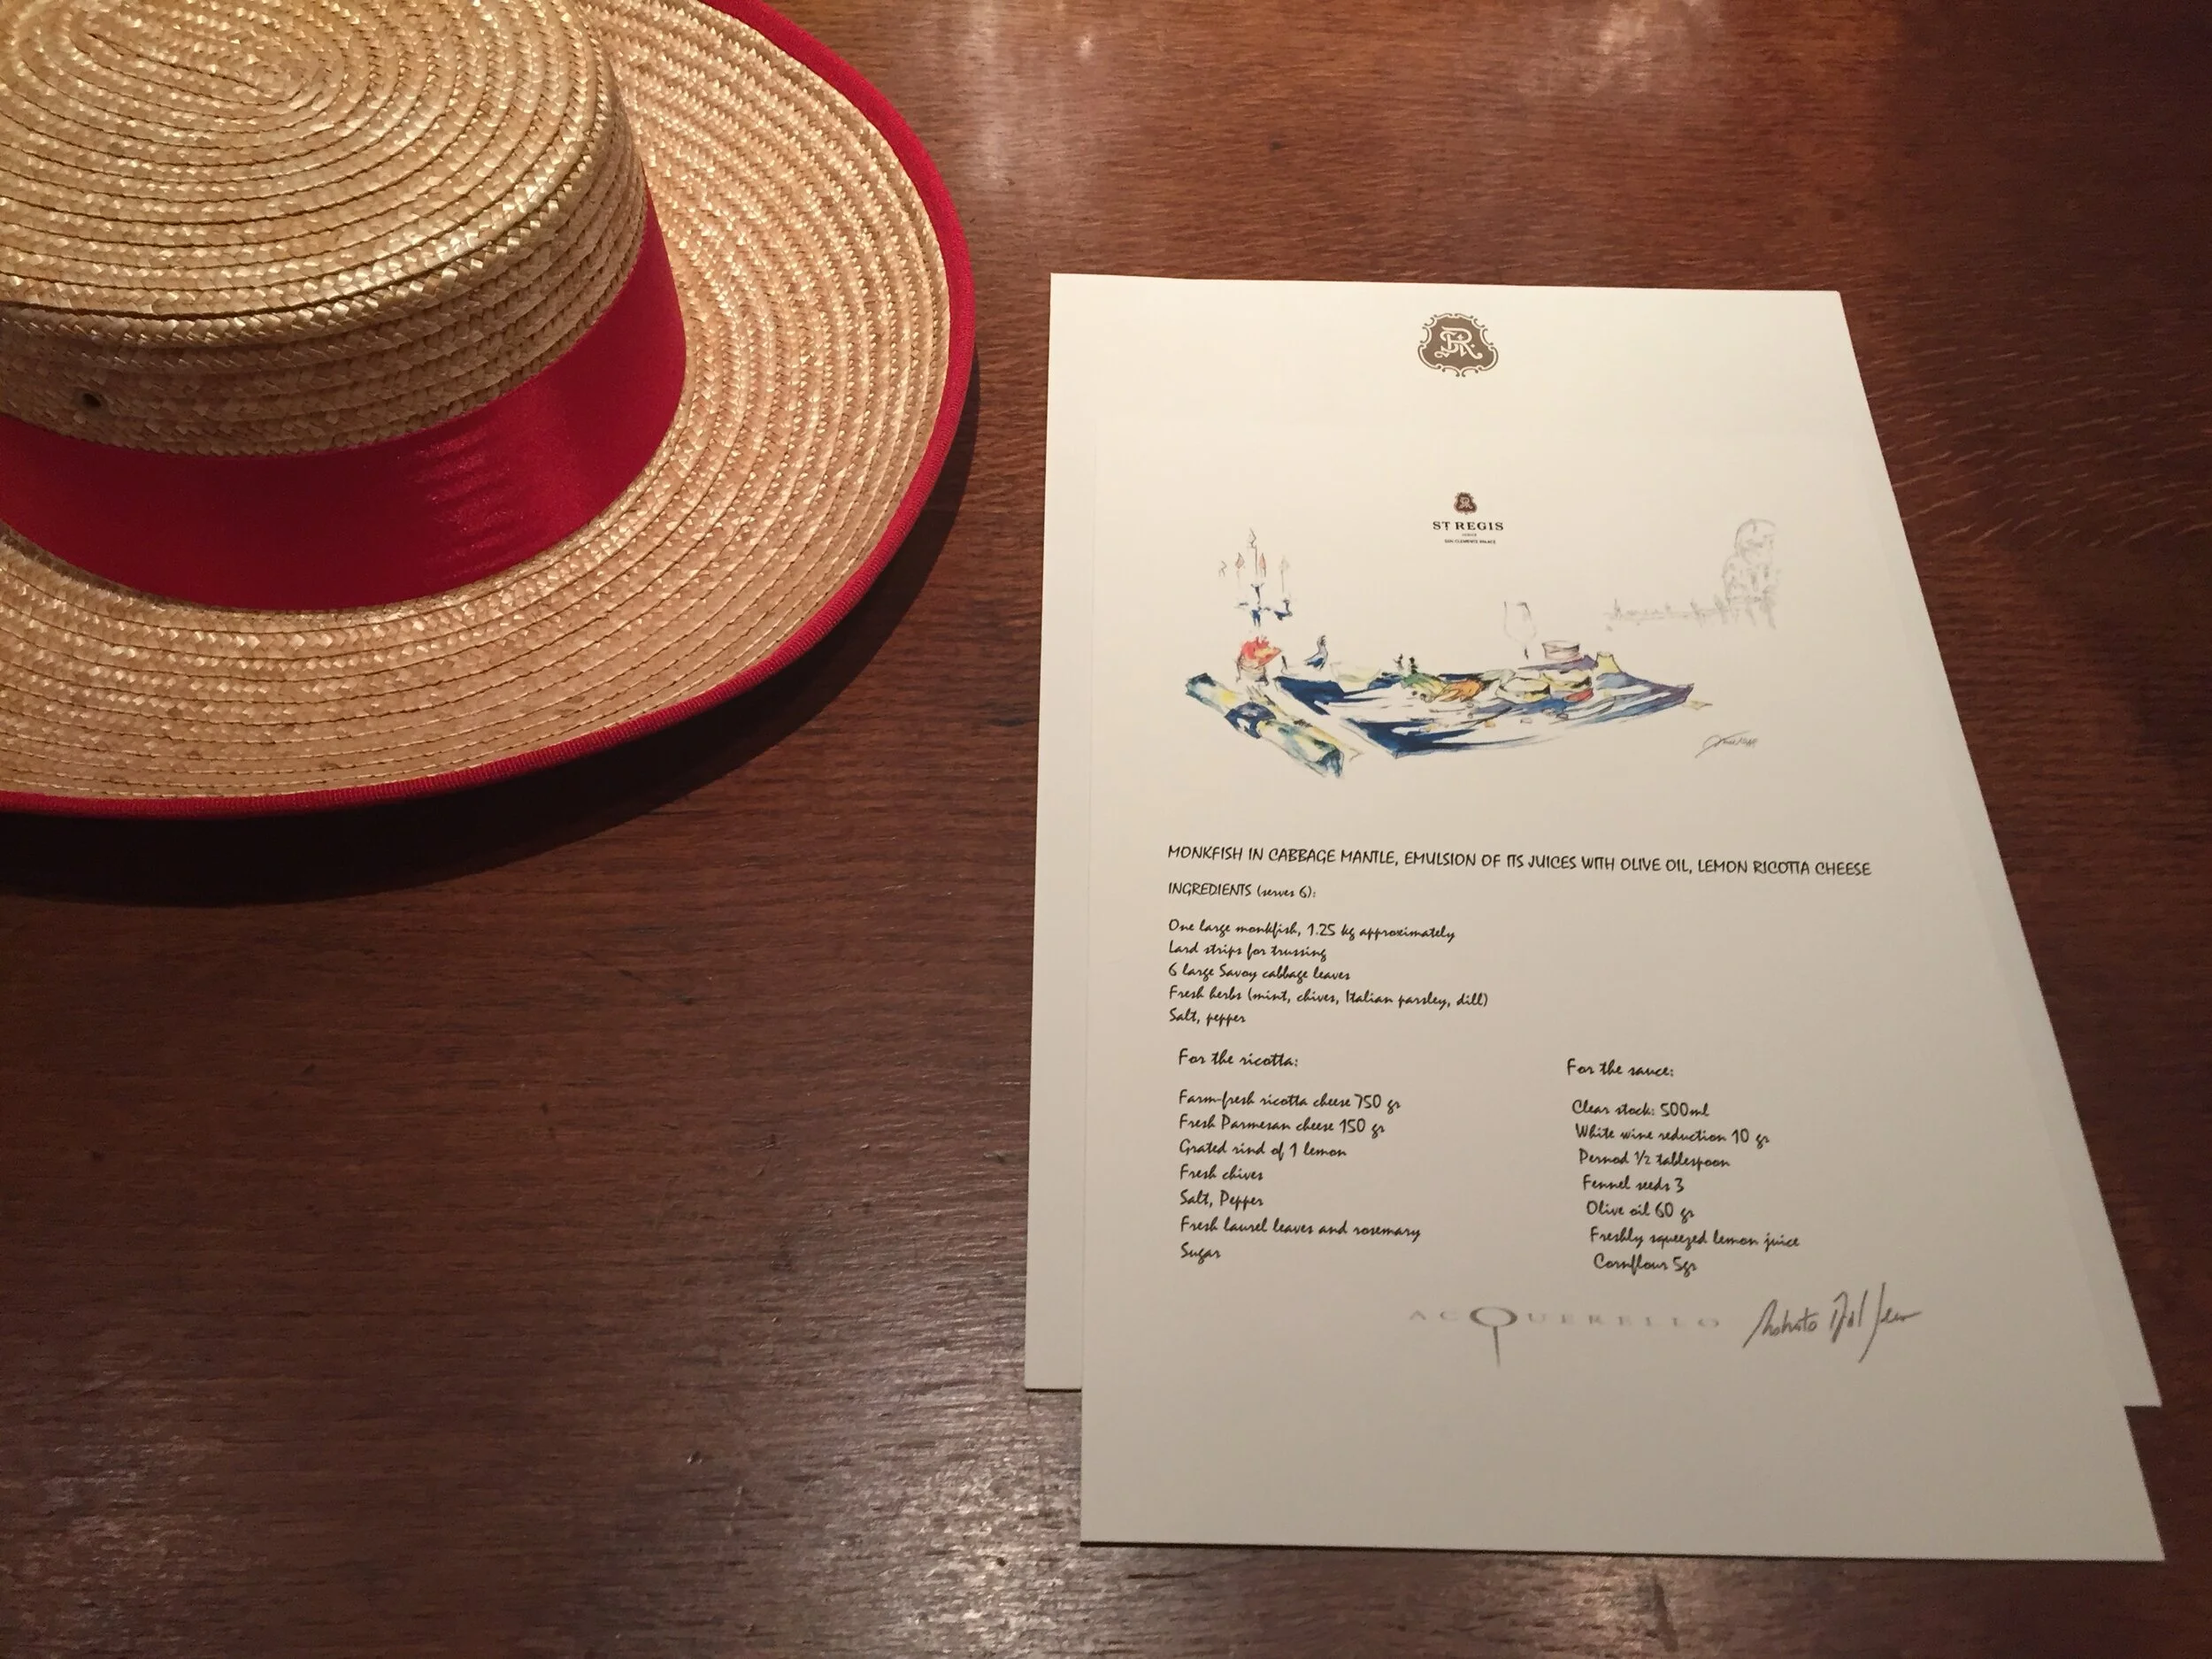 ST REGIS
VENICE
SAN CLEMENTE PALACE
MONKFISH IN CABBAGE MANTLE, EMULSION OF ITS JUICES WITH OLIVE OIL, LEMON RICOTTA CHEESE
INGREDIENTS (serves 6):
One large monkfish, 1.25 kg approximately
Lard strips for trussing
6 large Savoy cabbage leaves
Fresh herbs (mint, chives, Italian parsley, dill)
Salt, pepper
For the ricotta:
Farm-fresh ricotta cheese 750 gr
Fresh Parmesan cheese 150 gr
Grated rind of 1 lemon
Fresh chives
Salt, Pepper
Fresh laurel leaves and rosemary
Sugar
For the sauce:
Clear stock: 500ml
White wine reduction 10 gr
Pernod 1/2 tablespoon
Fennel seeds 3
Olive oil 60 gr
Freshly squeezed lemon juice
Cornflour 5gr
ACQUERELLO